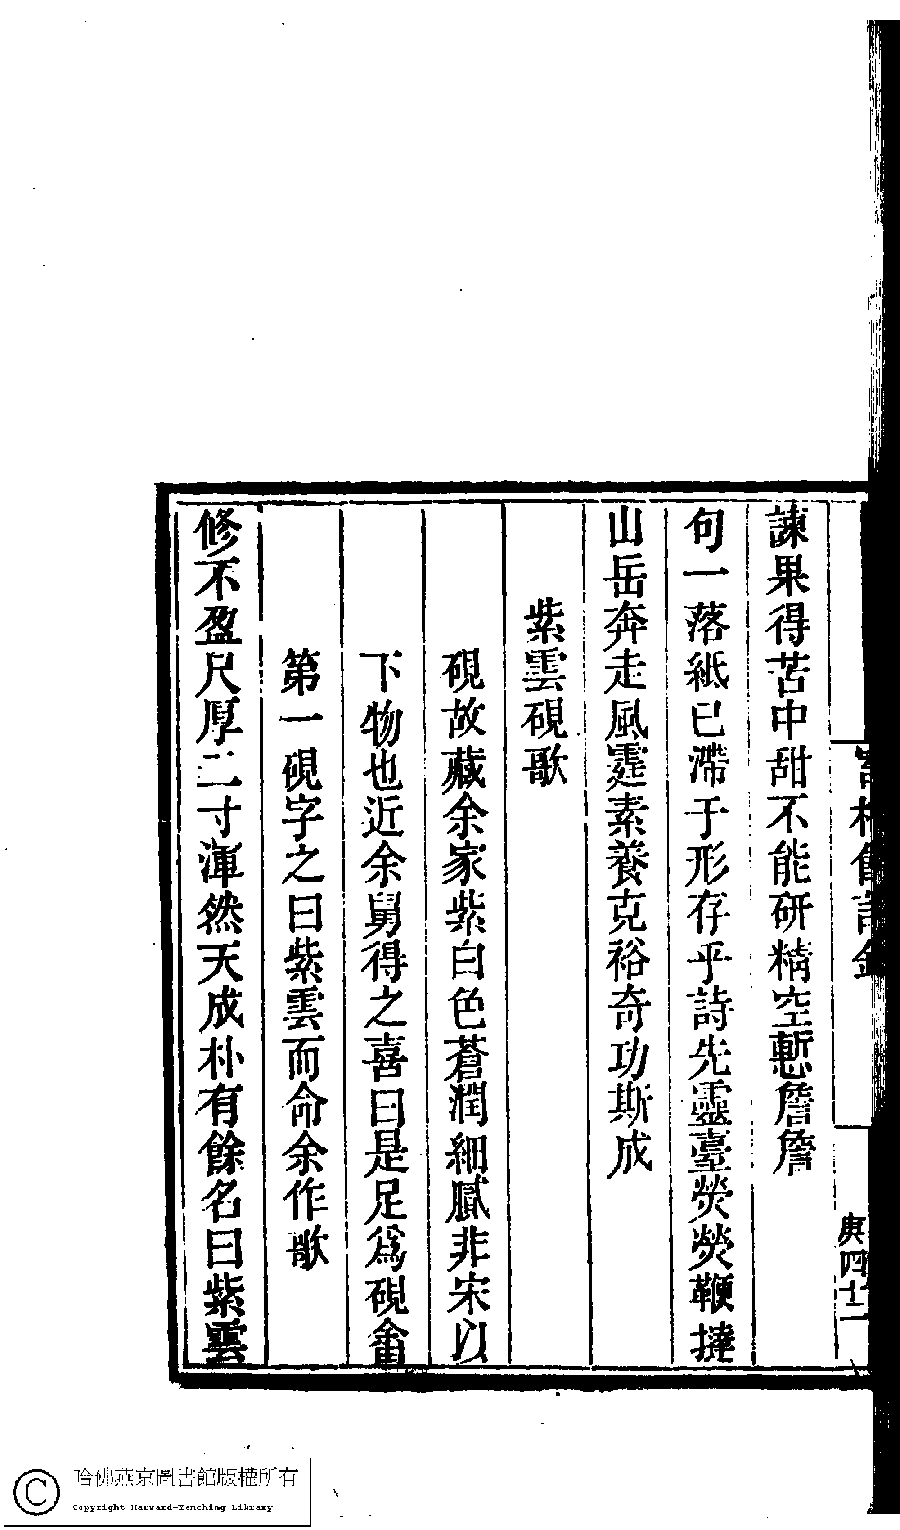 諫果得苦中甜不能研精空慙詹詹
句一落紙已滯于形存乎詩先靈臺熒熒鞭撻
山岳奔走風霆素養克裕奇功斯成
紫雲硯歌
硯故藏余家紫白色蒼潤細膩非宋以
下物也近余舅得之喜曰是足爲硯畬
第一硯字之曰紫雲而命余作歌
修不盈尺厚二寸渾然天成朴有餘名曰紫雲
庚四十一
哈佛燕京圖書館版權所有
Copyright Harvard-Yenching Library